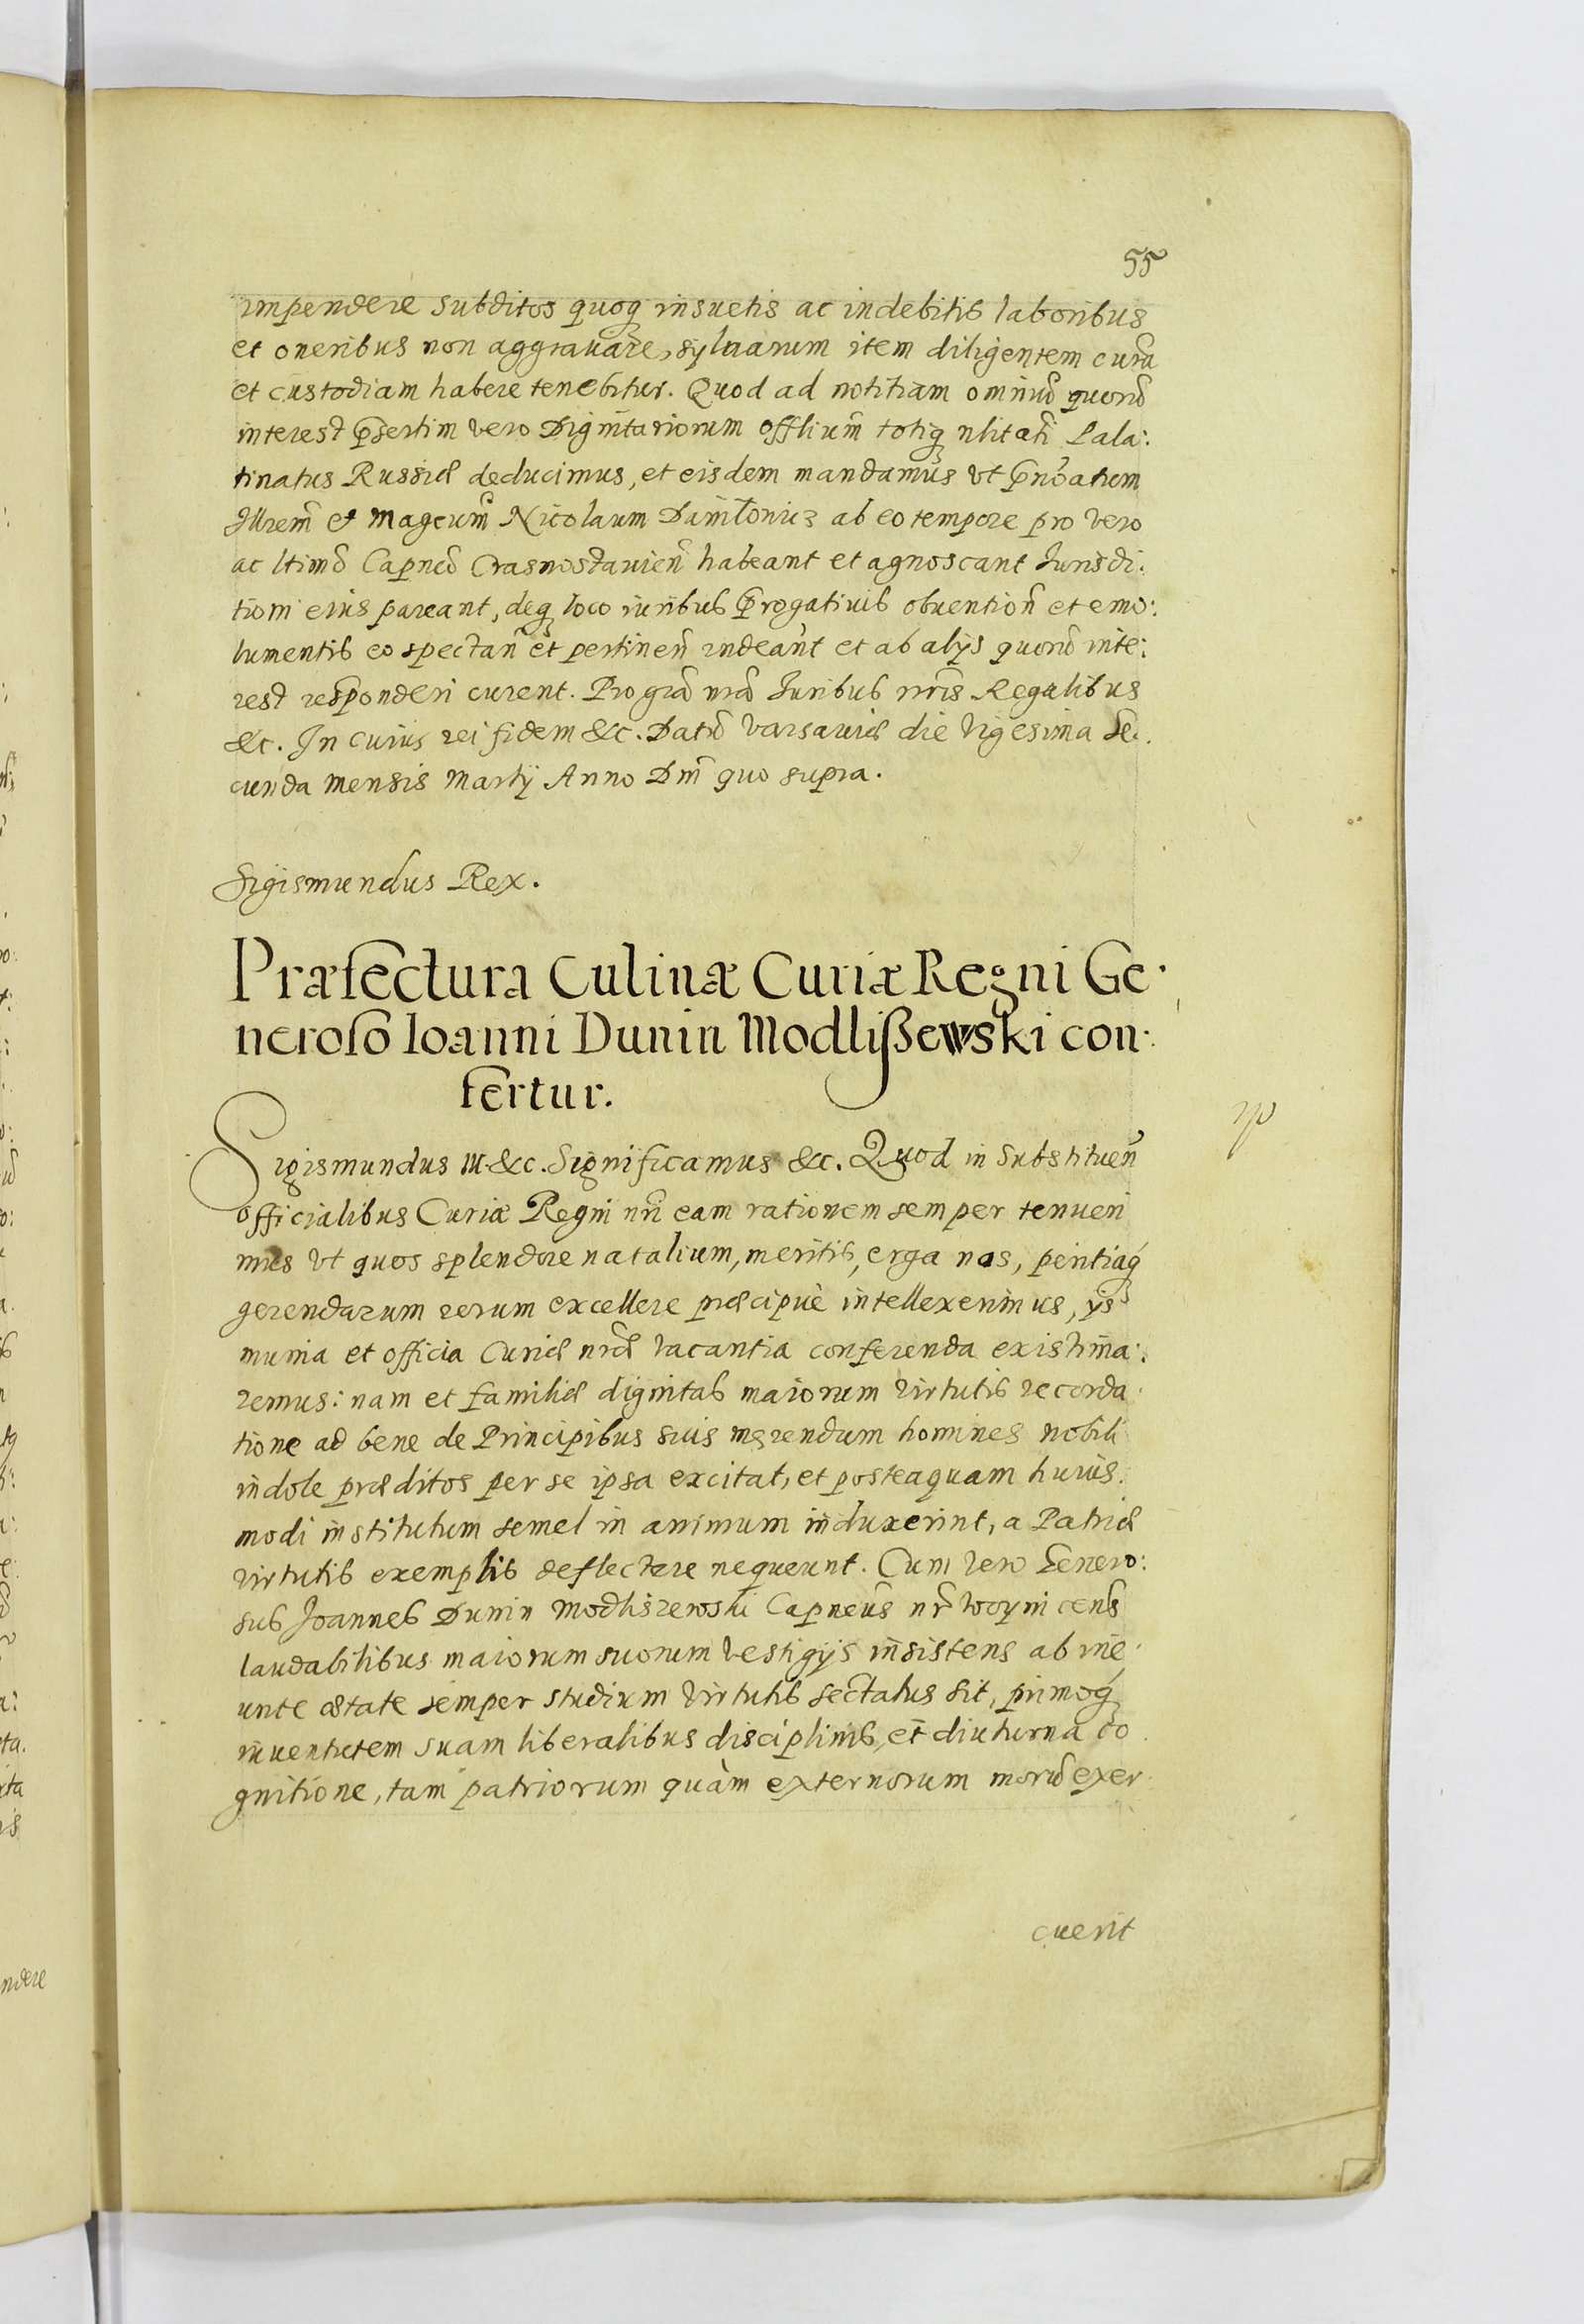 55
impendere subditos quoq insuetis ac indebitis laboribus
et oneribus non aggrauare, syluarum item diligentem curā
et custodiam habere tenebitur. Quod ad notitiam omniū quorū
interest p̄sertim vero Dignitariorum Offlium̄ totiq nlitati Pala:
tinatus Russiæ deducimus, et eisdem mandamus vt p̄no'atum
Illrem̄ et Magcum̄ Nicolaum Daniłowicz ab eo tempore pro vero
ac ltimō Capneō Crasnostauien̄ habeant et agnoscant Jurisdi:
tioni eius pareant, deq loco iuribus p̄rogatiuis obuention̄ et emo:
lumentis eo spectan̄ et pertinen̄ indeant et ab alijs quorū inte:
rest responderi curent. Pro grā nrā Juribus nris Regalibus
&c. In cuius rei fidem &c. Datū Varsauiæ die Vigesima Se:
cunda mensis Martij Anno Dni quo supra.
Sigismundus Rex.
Præfectura Culinæ Curiæ Regni Ge:
neroso Ioanni Dunin Modlißewski con:
fertur.
Sigismundus III &c. Significamus &c. Quod in Substituen̄
officialibus Curiæ Regni nri eam rationem semper tenueri
mus vt quos splendore natalium, meritis, erga nos, peritiaq
gerendarum rerum excellere præcipuè intellexerimus, ijs
munia et officia Curiæ nræ vacantia conferenda existima:
remus: nam et familiæ dignitas maiorum virtutis recorda:
tione ad bene de Principibus suis merendum homines nobili
indole præditos per se ipsa excitat, et posteaquam huius:
modi institutum semel in animum induxerint, a Patriæ
virtutis exemplis deflectere nequeunt. Cum vero Genero:
sus Joannes Dunin Modliszewski Capneus nr̄ Woynicens̄
laudabilibus maiorum suorum vestigijs insistens ab ine:
unte ætate semper studium virtutis sectatus sit, primoq
iuuentutem suam liberalibus disciplinis, et diuturna co
gnitione, tam patriorum quàm externorum morū exer
cuerit